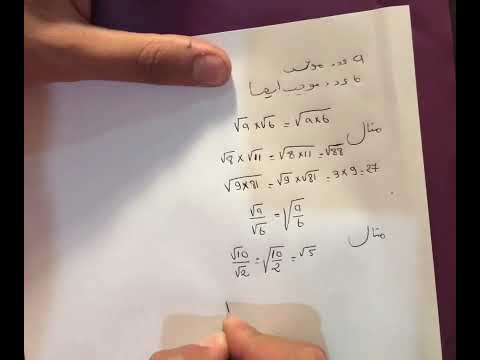 a عدد موجب
b عدد موجب أيضا
√a × √b = √(a×b)
مثال
√8 × √11 = √(8×11) = √88
√(9×81) = √9 × √81 = 3×9 = 27
√a/√b = √(a/b)
مثال
√10/√2 = √(10/2) = √5